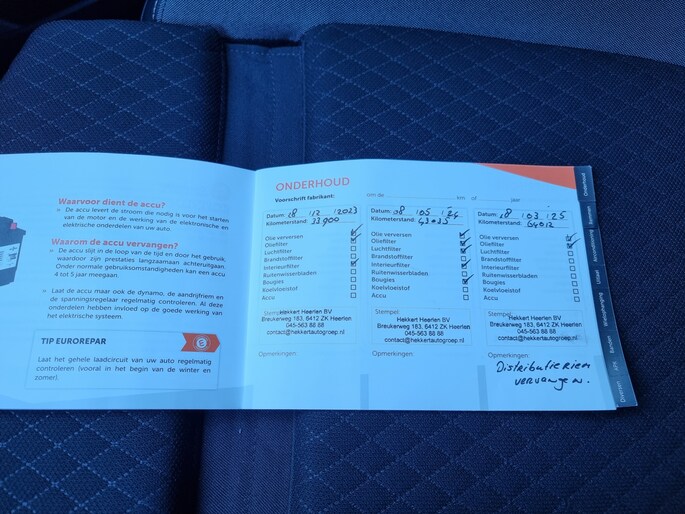 Waarvoor dient de accu?
» De accu levert de stroom die nodig is voor het starten
van de motor en de werking van de elektronische en
elektrische onderdelen van uw auto.
Waarom de accu vervangen?
» De accu slijt in de loop van de tijd en door het gebruik,
waardoor zijn prestaties langzaamaan achteruitgaan.
Onder normale gebruiksomstandigheden kan een accu
4 tot 5 jaar meegaan.
» Laat de accu maar ook de dynamo, de aandrijfriem en
de spanningsregelaar regelmatig controleren. Al deze
onderdelen hebben invloed op de goede werking van
het elektrische systeem.
TIP EUROREPAR
Laat het gehele laadcircuit van uw auto regelmatig
controleren (vooral in het begin van de winter en
zomer).
ONDERHOUD
Voorschrift fabrikant: om de km of jaar
Datum: 18 12 2023
Kilometerstand: 33900
Olie verversen
Oliefilter
Luchtfilter
Brandstoffilter
Interieurfilter
Ruitenwisserbladen
Bougies
Koelvloeistof
Accu
Stempel:
Hekkert Heerlen BV
Breukerweg 183, 6412 ZK Heerlen
045-563 88 88
contact@hekkertautogroep.nl
Opmerkingen:
Datum: 08 05 24
Kilometerstand:
Olie verversen
Oliefilter
Luchtfilter
Brandstoffilter
Interieurfilter
Ruitenwisserbladen
Bougies
Koelvloeistof
Accu
Stempel:
Hekkert Heerlen BV
Breukerweg 183, 6412 ZK Heerlen
045-563 88 88
contact@hekkertautogroep.nl
Opmerkingen:
Datum: 18 03 25
Kilometerstand: 64012
Olie verversen
Oliefilter
Luchtfilter
Brandstoffilter
Interieurfilter
Ruitenwisserbladen
Bougies
Koelvloeistof
Accu
Stempel:
Hekkert Heerlen BV
Breukerweg 183, 6412 ZK Heerlen
045-563 88 88
contact@hekkertautogroep.nl
Opmerkingen:
Distributieriem
vervangen.
Onderhoud
Banden
APK
Diversen